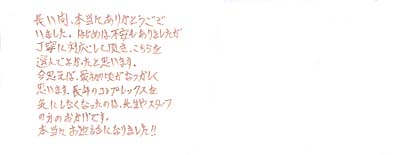 長い間、本当にありがとうござ
いました。はじめは不安もありましたが
丁寧に対応して頂き、こちらを
選んでよかったと思います。
今思えば、最初の頃がなつかしく
思います。長年のコンプレックスを
気にしなくなったのは、先生やスタッフ
の方のおかげです。
本当にお世話になりました!!